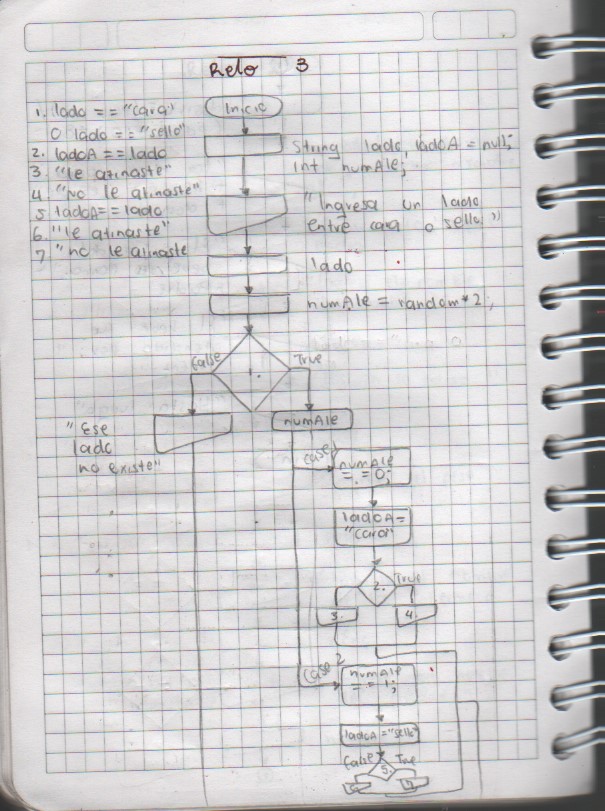 Reto 3
1. lado == "cara"
O lado == "sello"
2. ladoA == lado
3. "le atinaste"
4 "no le atinaste"
5 ladoA == lado
6. "le atinaste"
7 "no le atinaste
Inicio
String lado, ladoA = null;
int numAle;
"Ingresa un lado
entre cara o sello"
lado
numAle = random*2;
False
1.
True
"Ese
lado
no existe"
numAle
case 1
numAle
== 0;
ladoA =
"cara"
2.
True
3.
4.
case 2
numAle
== 1;
ladoA = "sello"
False
5.
True
6
7